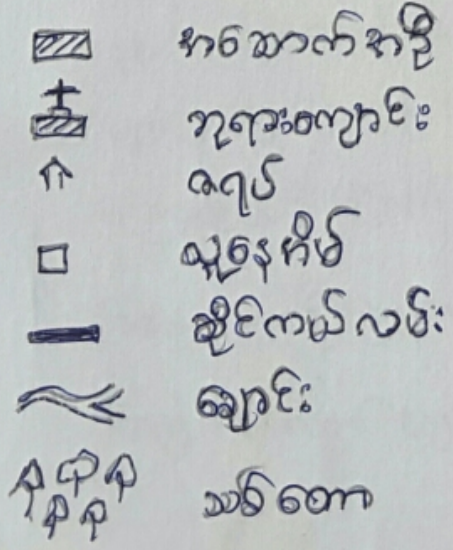 အဆောက်အဦ
ဘုရားကျောင်း
ဇရပ်
လူနေအိမ်
ဆိုင်ကယ်လမ်း
ချောင်း
သစ်တော